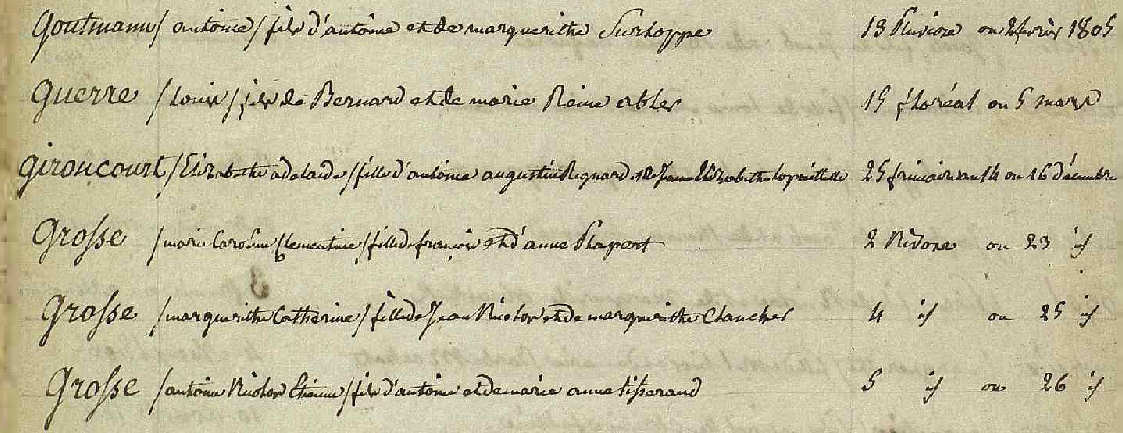 Goutmann / antoine / fils d'antoine et de marguerithe Surhoppe 13 Pluviose ou 2 fevrier 1805
Guerre / Louis / fils de Bernard et de marie Reine obles 15 floréal ou 5 mars
Gironcourt / Elizabethe adelaide / fille d'antoine augustin Regnard et Elizabethe 25 frimaire an 14 ou 16 décembre
Grosse / marie Caroline Clementine / fille de françois et d'anne 2 Nivose ou 23 id
Grosse / marguerithe Catherine / fille de Jean Nicolas et de marguerithe Clauchez 4 id ou 25 id
Grosse / antoine Nicolas Etienne / fils d'antoine et de marie anne tisserand 5 id ou 26 id